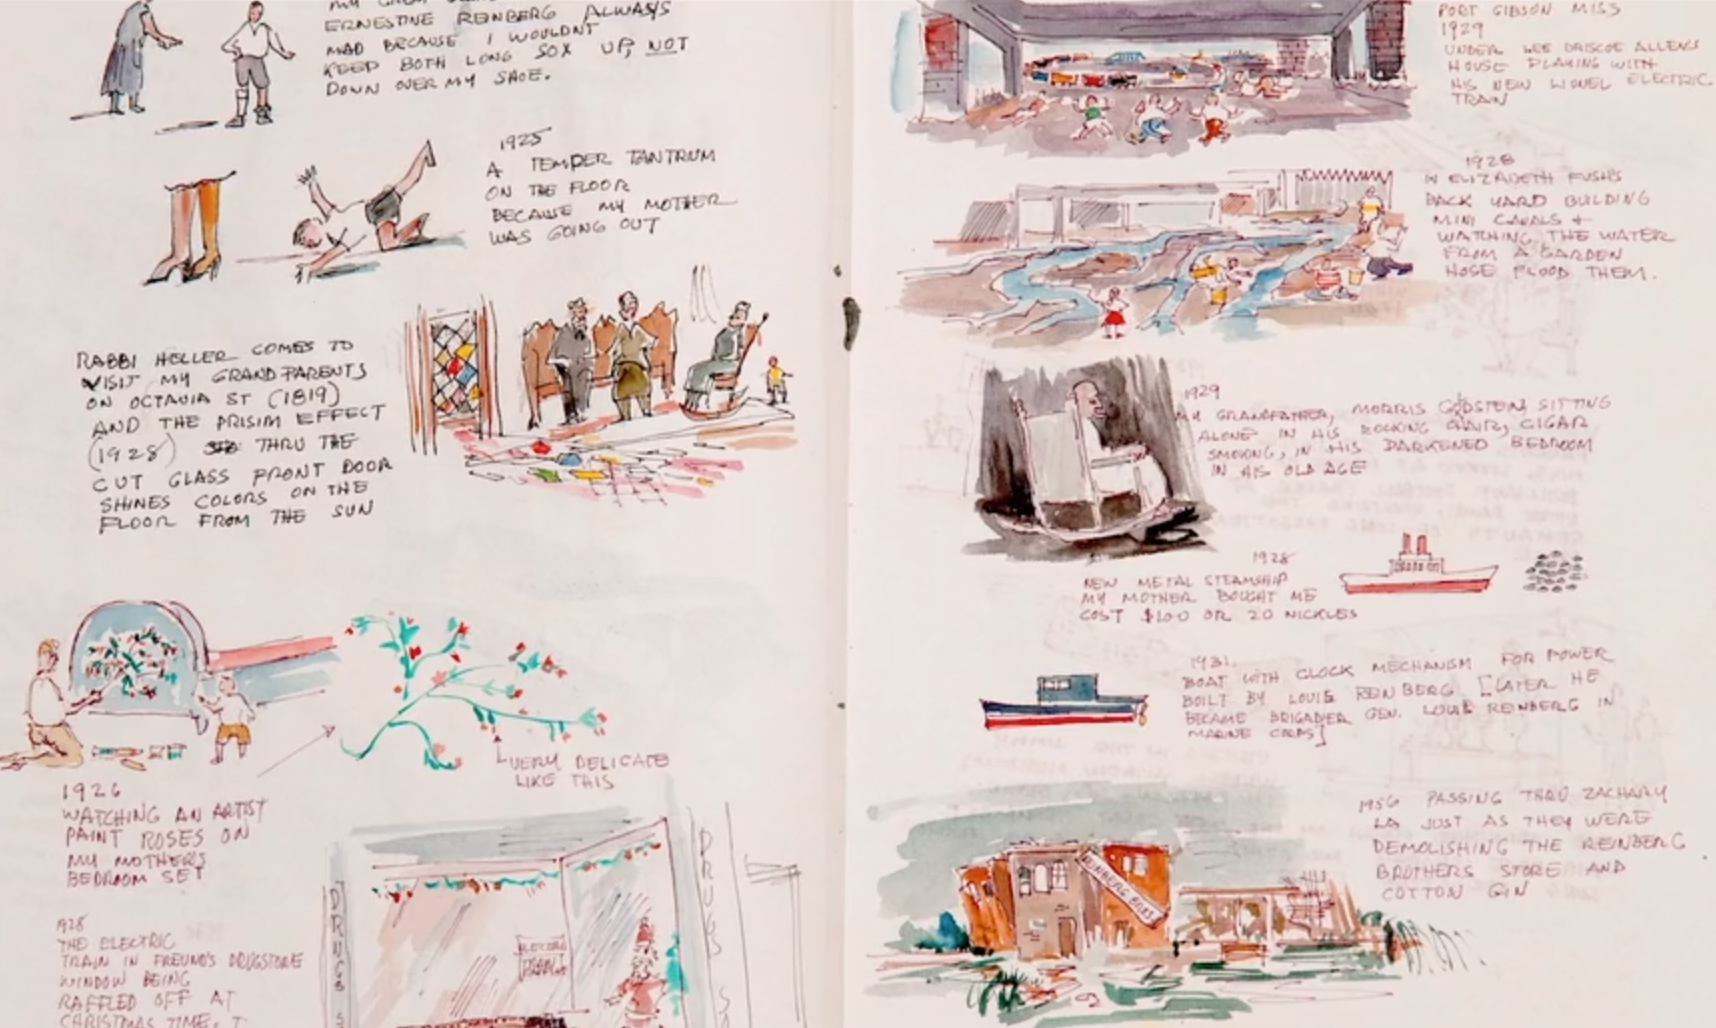 ERNESTINE REINBERG ALWAYS
MAD BECAUSE I WOULDNT
KEEP BOTH LONG SOX UP, NOT
DOWN OVER MY SHOE.
1925
A TEMPER TANTRUM
ON THE FLOOR
BECAUSE MY MOTHER
WAS GOING OUT
RABBI HELLER COMES TO
VISIT MY GRANDPARENTS
ON OCTAVIA ST (1819)
AND THE PRISIM EFFECT
(1928) THRU THE
CUT GLASS FRONT DOOR
SHINES COLORS ON THE
FLOOR FROM THE SUN
VERY DELICATE
LIKE THIS
1926
WATCHING AN ARTIST
PAINT ROSES ON
MY MOTHER'S
BEDROOM SET
1928
THE ELECTRIC
TRAIN IN FREUND'S DRUGSTORE
WINDOW BEING
RAFFLED OFF AT
CHRISTMAS TIME. I
DRUGS
ELECTRIC
TRAIN
DRUGS
PORT GIBSON MISS
1929
UNDER LEE DRISCOE ALLENS
HOUSE PLAYING WITH
HIS NEW LIONEL ELECTRIC
TRAIN
1928
IN ELIZABETH FUSH'S
BACK YARD BUILDING
MINI CANALS +
WATCHING THE WATER
FROM A GARDEN
HOSE FLOOD THEM.
1929
MY GRANDFATHER, MORRIS GOLDSTEIN, SITTING
ALONE IN HIS ROCKING CHAIR, CIGAR
SMOKING, IN HIS DARKENED BEDROOM
IN HIS OLD AGE
1928
NEW METAL STEAMSHIP
MY MOTHER BOUGHT ME
COST $1.00 OR 20 NICKLES
1931.
BOAT WITH CLOCK MECHANISM FOR POWER
BUILT BY LOUIS REINBERG [LATER HE
BECAME BRIGADIER GEN. LOUIS REINBERG IN
MARINE CORPS]
1956 PASSING THRU ZACHARY
LA JUST AS THEY WERE
DEMOLISHING THE REINBERG
BROTHERS STORE AND
COTTON GIN
REINBERG BROS.